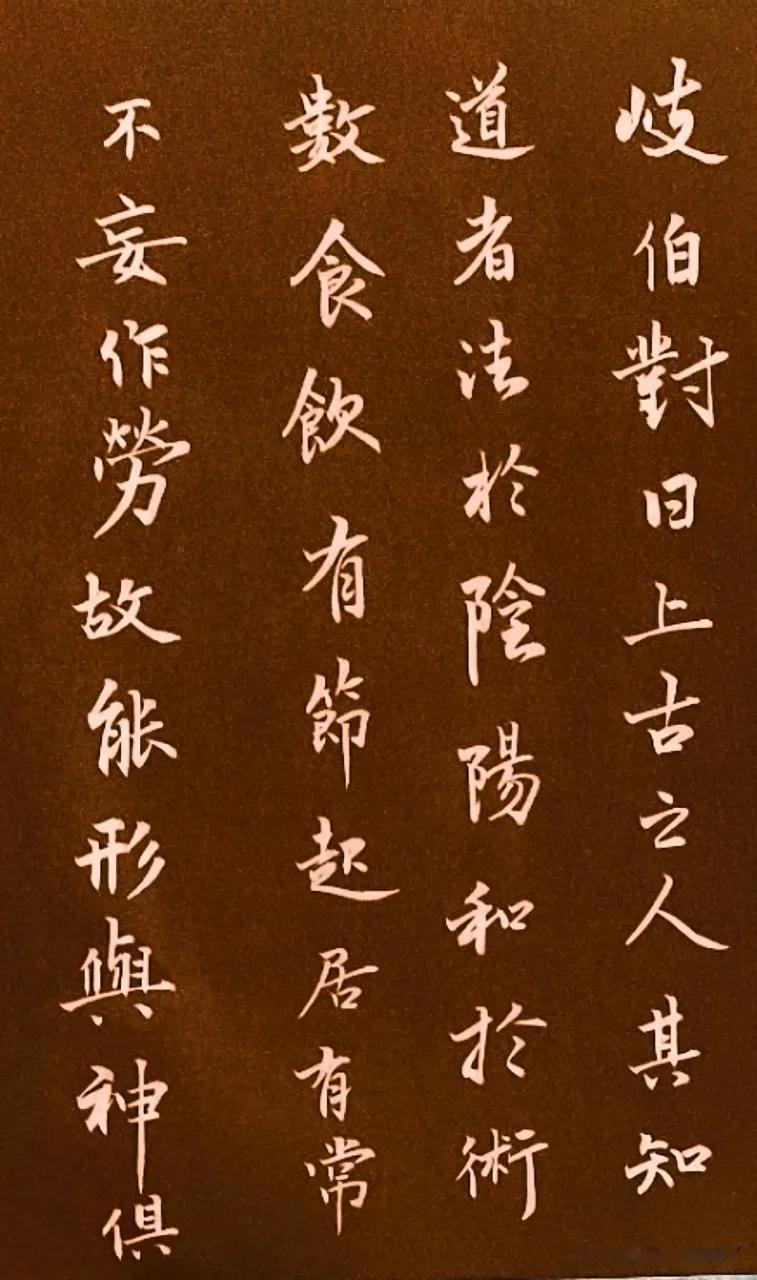 岐伯對曰上古之人其知
道者法於陰陽和於術
數食飲有節起居有常
不妄作勞故能形與神俱